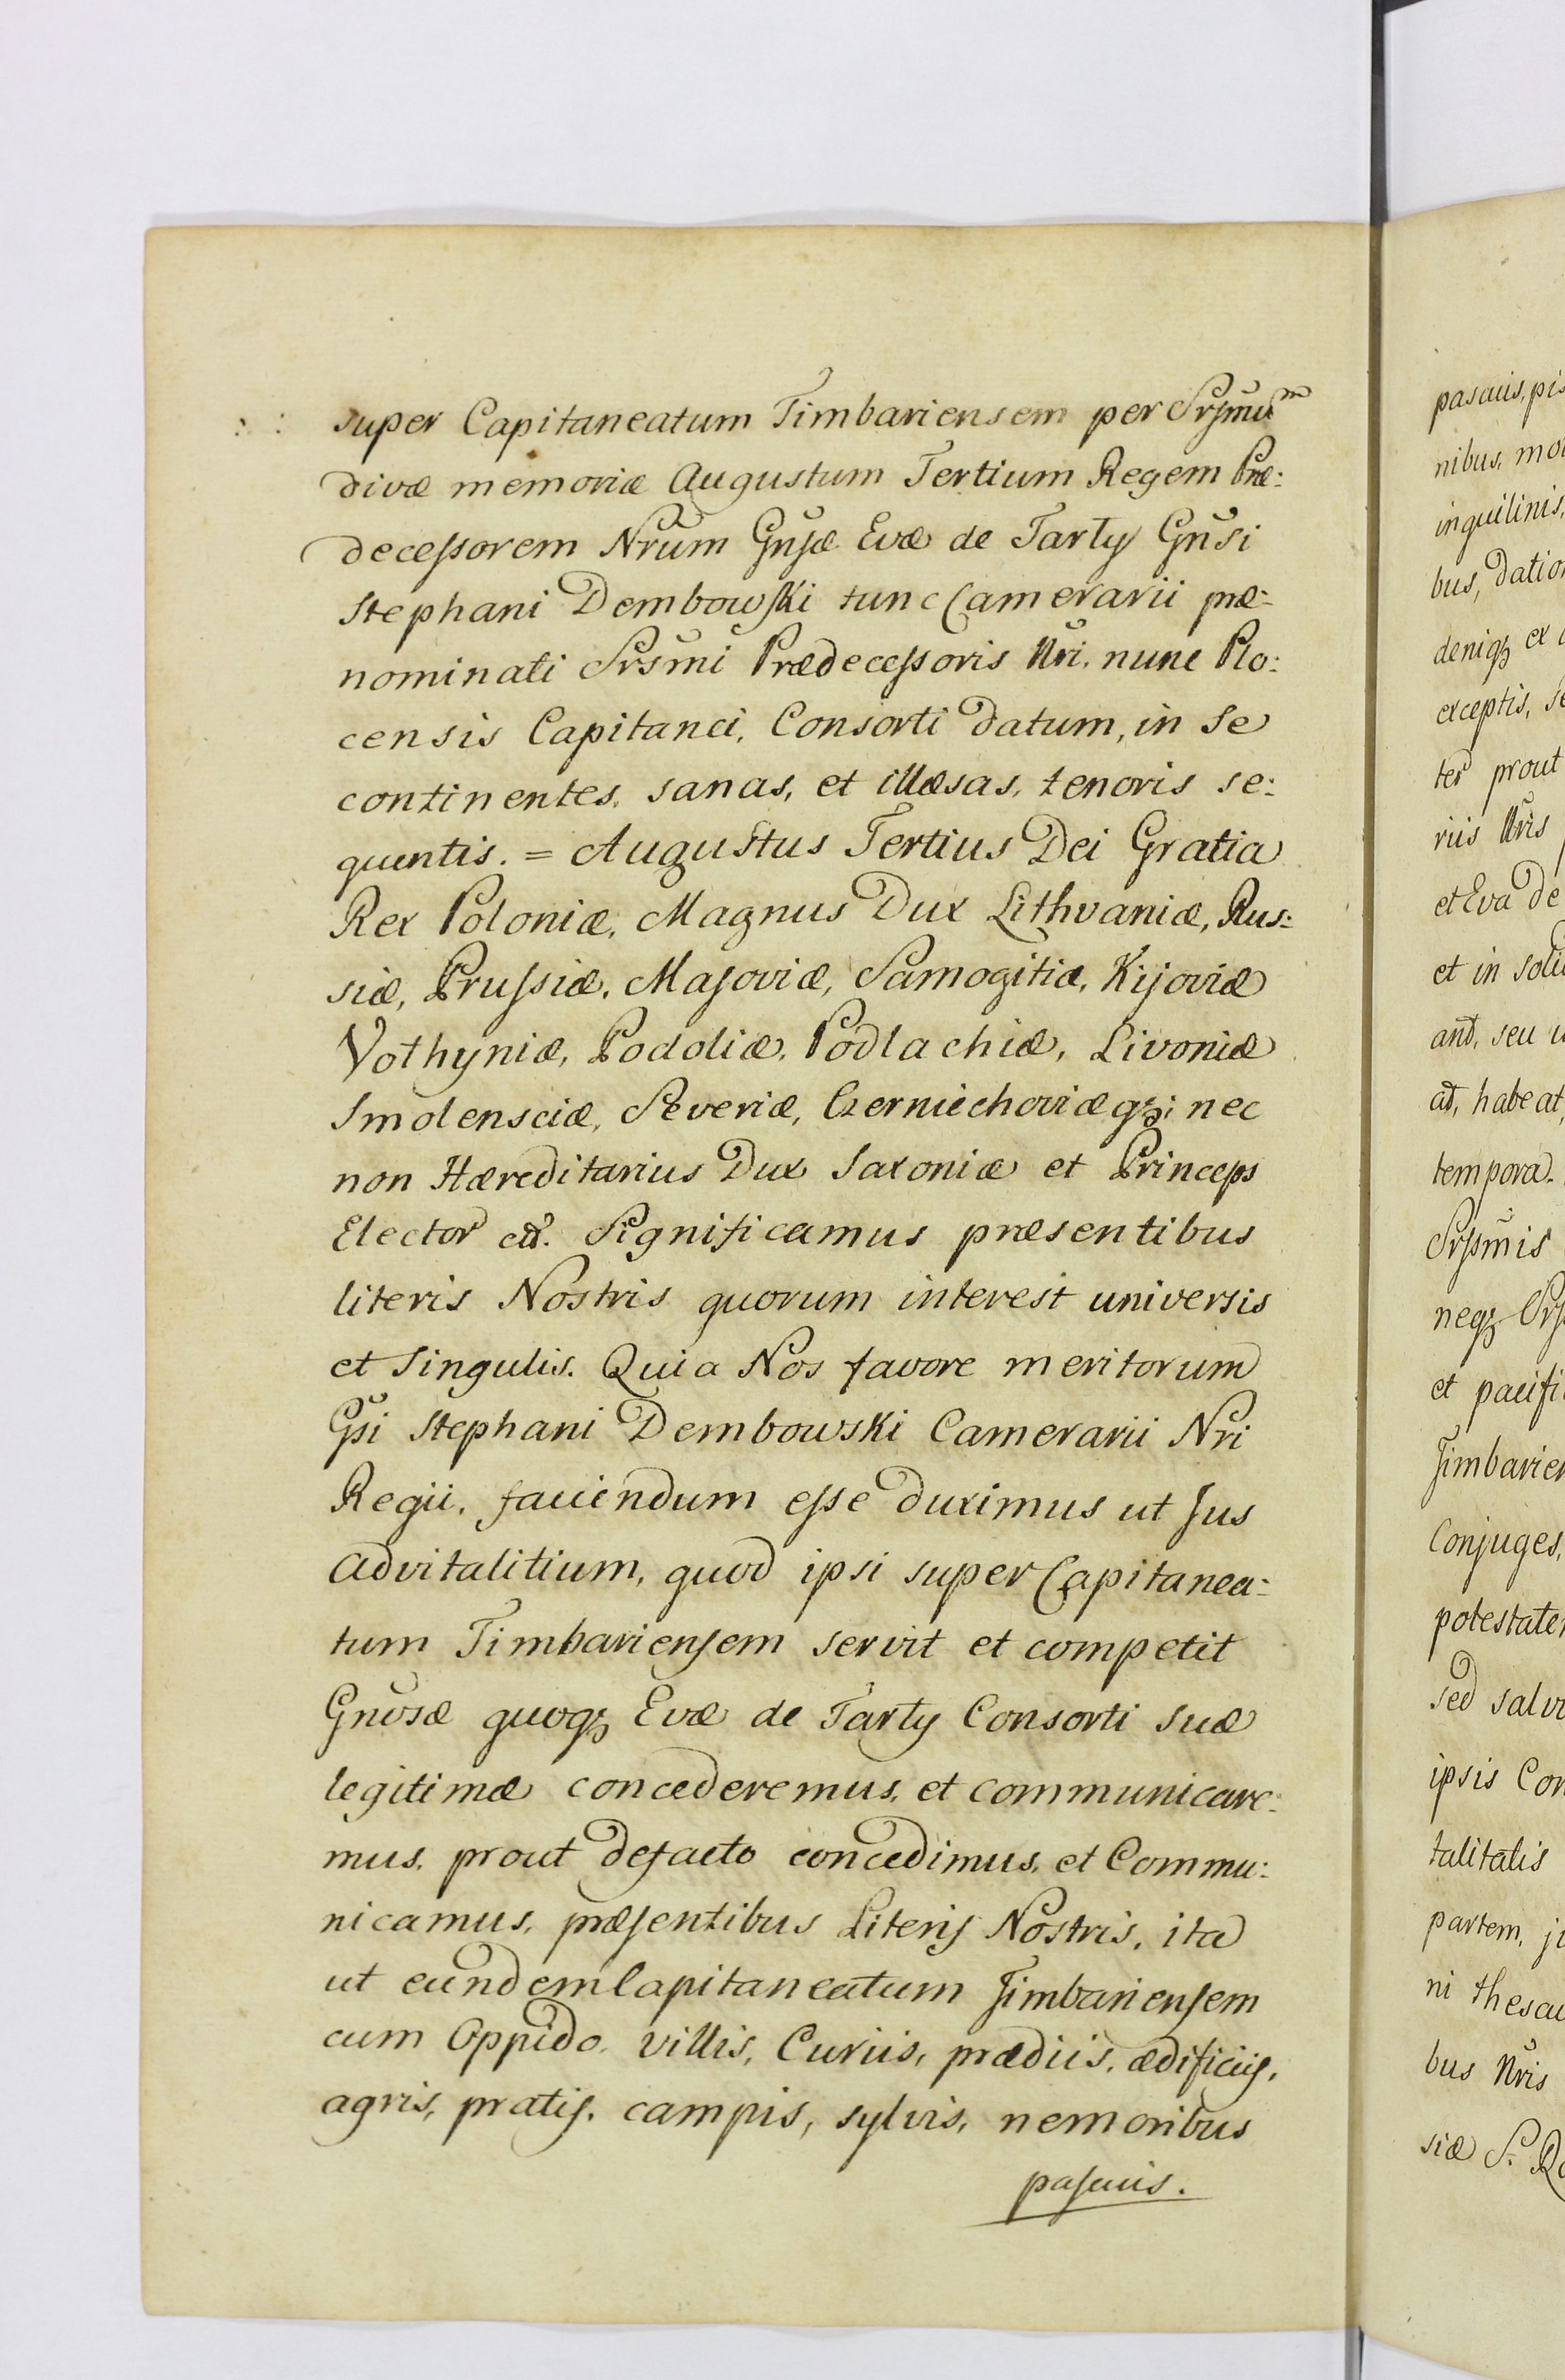 super Capitaneatum Timbariensem per Srsmũm
divæ memoriæ Augustum Tertium Regem Præ:
decessorem Nrũm Gnsæ Evæ de Tarły Gnũsi
Stephani Dembowski tunc Camerarii præ-
nominati Srsmĩ Prædecessoris Nri, nunc Plo:
censis Capitanei, Consorti datum, in se
continentes, sanas, et illæsas, tenoris se:
quentis. = Augustus Tertius Dei Gratia
Rex Poloniæ, Magnus Dux Lithvaniæ, Rus:
siæ, Prussiæ, Masoviæ, Samogitiæ, Kijoviæ
Vothyniæ, Podoliæ, Podlachiæ, Livoniæ
Smolensciæ, Severiæ, Czerniechoviæqȝ; nec
non Hæreditarius Dux Saxoniæ et Princeps
Elector ett. Significamus præsentibus
literis Nostris quorum interest universis
et Singulis. Quia Nos favore meritorum
Gsi Stephani Dembowski Camerarii Nri
Regii, faciendum esse duximus ut Jus
advitalitium, quod ipsi super Capitanea:
tum Timbariensem servit et competit
Gnũsæ quoqȝ Evæ de Tarły Consorti suæ
legitimæ concederemus, et communicare:
mus, prout defacto concedimus, et Commu:
nicamus, præsentibus Literis Nostris, ita
ut eundem Capitaneatum Timbariensem
cum Oppido, villis, Curiis, prædiis, ædificiis,
agris, pratis, campis, sylvis, nemoribus
pascuis.
pascuis, pis
nibus, mo
inquilinis,
bus, datio
deniqȝ ex
exceptis, se
ter prout
riis Nris
et Eva de
et in soli
ant, seu u
at, habeat,
tempora.
Srssmis
neqȝ Srs
et pacifi
Timbarien
Conjuges,
potestate
sed salv
ipsis Con
talitatis
partem, ju
ni thesau
bus Nris
siæ S. R